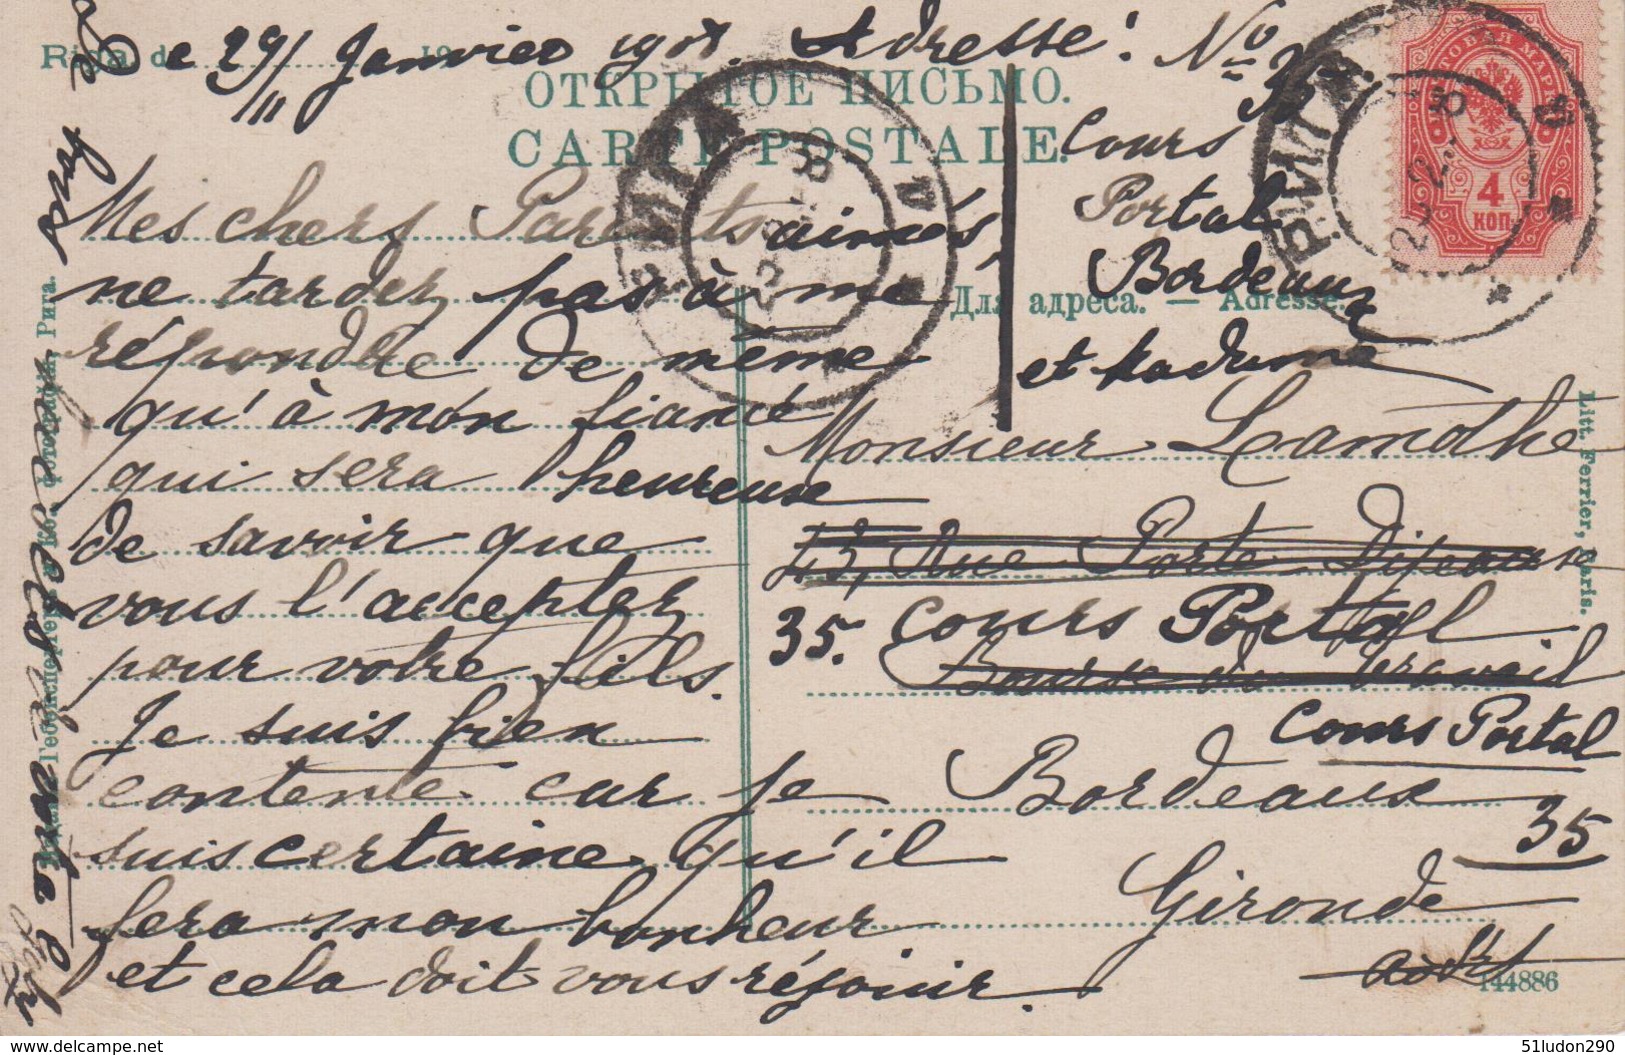 Riga, d 19
Ce 29/11 Janvier 1908. Adresse: No 35
ОТКРЫТОЕ ПИСЬМО.
CARTE POSTALE.
Cours
Portal
Bordeaux
et Madame
Для адреса. — Adresse.
Mes chers Parents aimés,
ne tardez pas à me
répondre de même
qu'à mon fiancé
qui sera heureuse
de savoir que
vous l'acceptez
pour votre fils.
Je suis bien
contente car je
suis certaine qu'il
fera mon bonheur
et cela doit vous réjouir.
Monsieur Lamothe
Rue Porte Dijeaux
35. Cours Portal
Bourse du Travail
Cours Portal
Bordeaux
35
Gironde
144886
РИГА
4
КОП.
Litt. Ferrier, Paris.
51ludon290